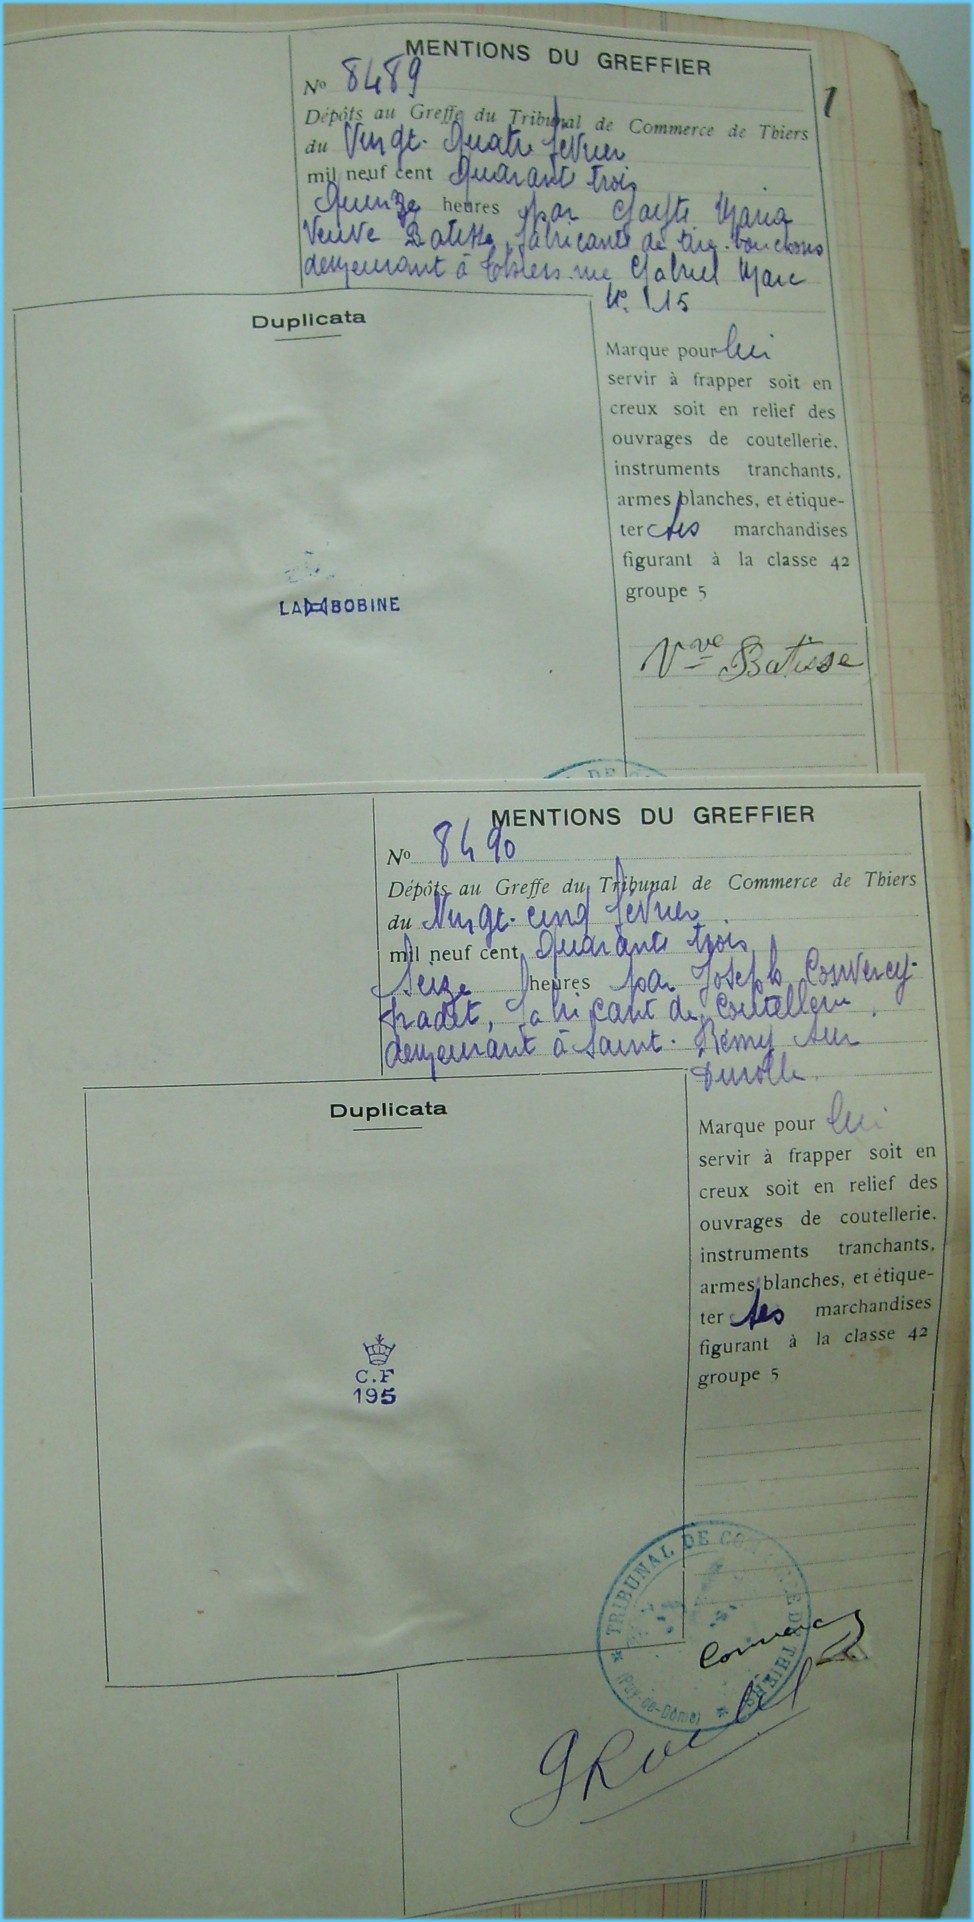 MENTIONS DU GREFFIER
1
No 8489
Dépôts au Greffe du Tribunal de Commerce de Thiers
du Vingt-Quatre février
mil neuf cent Quarante trois
Quinze heures par Maria
Veuve Batisse, fabricante de tire-bouchons
demeurant à Thiers rue Gabriel Marc
No 115
Duplicata
Marque pour lui
servir à frapper soit en
creux soit en relief des
ouvrages de coutellerie.
instruments tranchants,
armes blanches, et étique-
ter ses marchandises
figurant à la classe 42
groupe 5
LA BOBINE
Vve Batisse
DE C
MENTIONS DU GREFFIER
No 8490
Dépôts au Greffe du Tribunal de Commerce de Thiers
du Vingt-cinq février
mil neuf cent Quarante trois
Seize heures par Joseph Convercy-
fradet, fabricant de Coutellerie,
demeurant à Saint-Rémy sur
Durolle.
Duplicata
Marque pour lui
servir à frapper soit en
creux soit en relief des
ouvrages de coutellerie.
instruments tranchants,
armes blanches, et étique-
ter ses marchandises
figurant à la classe 42
groupe 5
C.F
195
TRIBUNAL DE COMMERCE DE THIERS
(Puy-de-Dôme)
Convercy